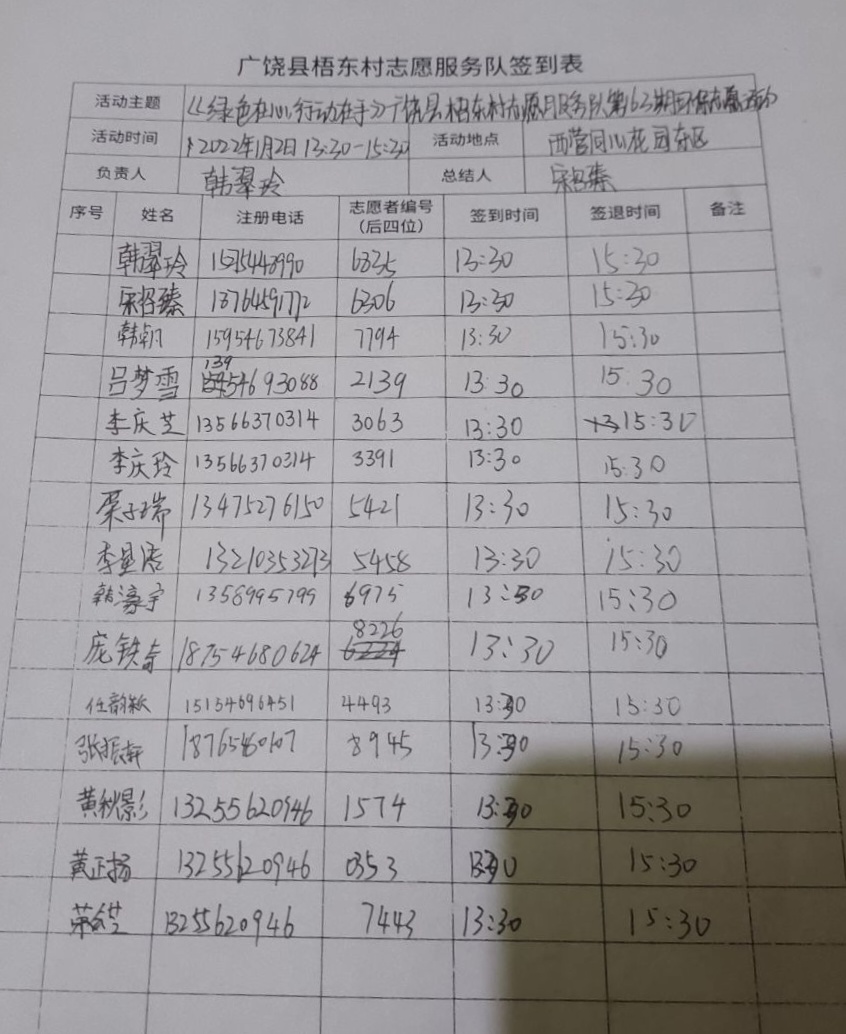 广饶县梧东村志愿服务队签到表
活动主题 《绿色在心,行动在于》广饶县梧东村志愿服务队第63期环保志愿活动
活动时间 2022年1月2日 13:30-15:30 活动地点 西营同心花园东区
负责人 韩翠玲 总结人
序号 姓名 注册电话 志愿者编号 签到时间 签退时间 备注
(后四位)
韩翠玲 6335 13:30 15:30
13764591772 6306 13:30 15:30
15954673841 7794 13:30 15:30
139
吕梦雪 54693088 2139 13:30 15:30
李庆芝 13566370314 3063 13:30 15:30
李庆玲 13566370314 3391 13:30 15:30
栗子瑞 13475276150 5421 13:30 15:30
13210353273 5458 13:30 15:30
1356995799 6975 13:30 15:30
8226
18754680624 6224 13:30 15:30
任韵颖 15154696451 4493 13:30 15:30
张振轩 8945 13:30 15:30
黄秋影 13255620946 1574 13:30 15:30
黄正扬 13255620946 0353 13:30 15:30
13255620946 7443 13:30 15:30